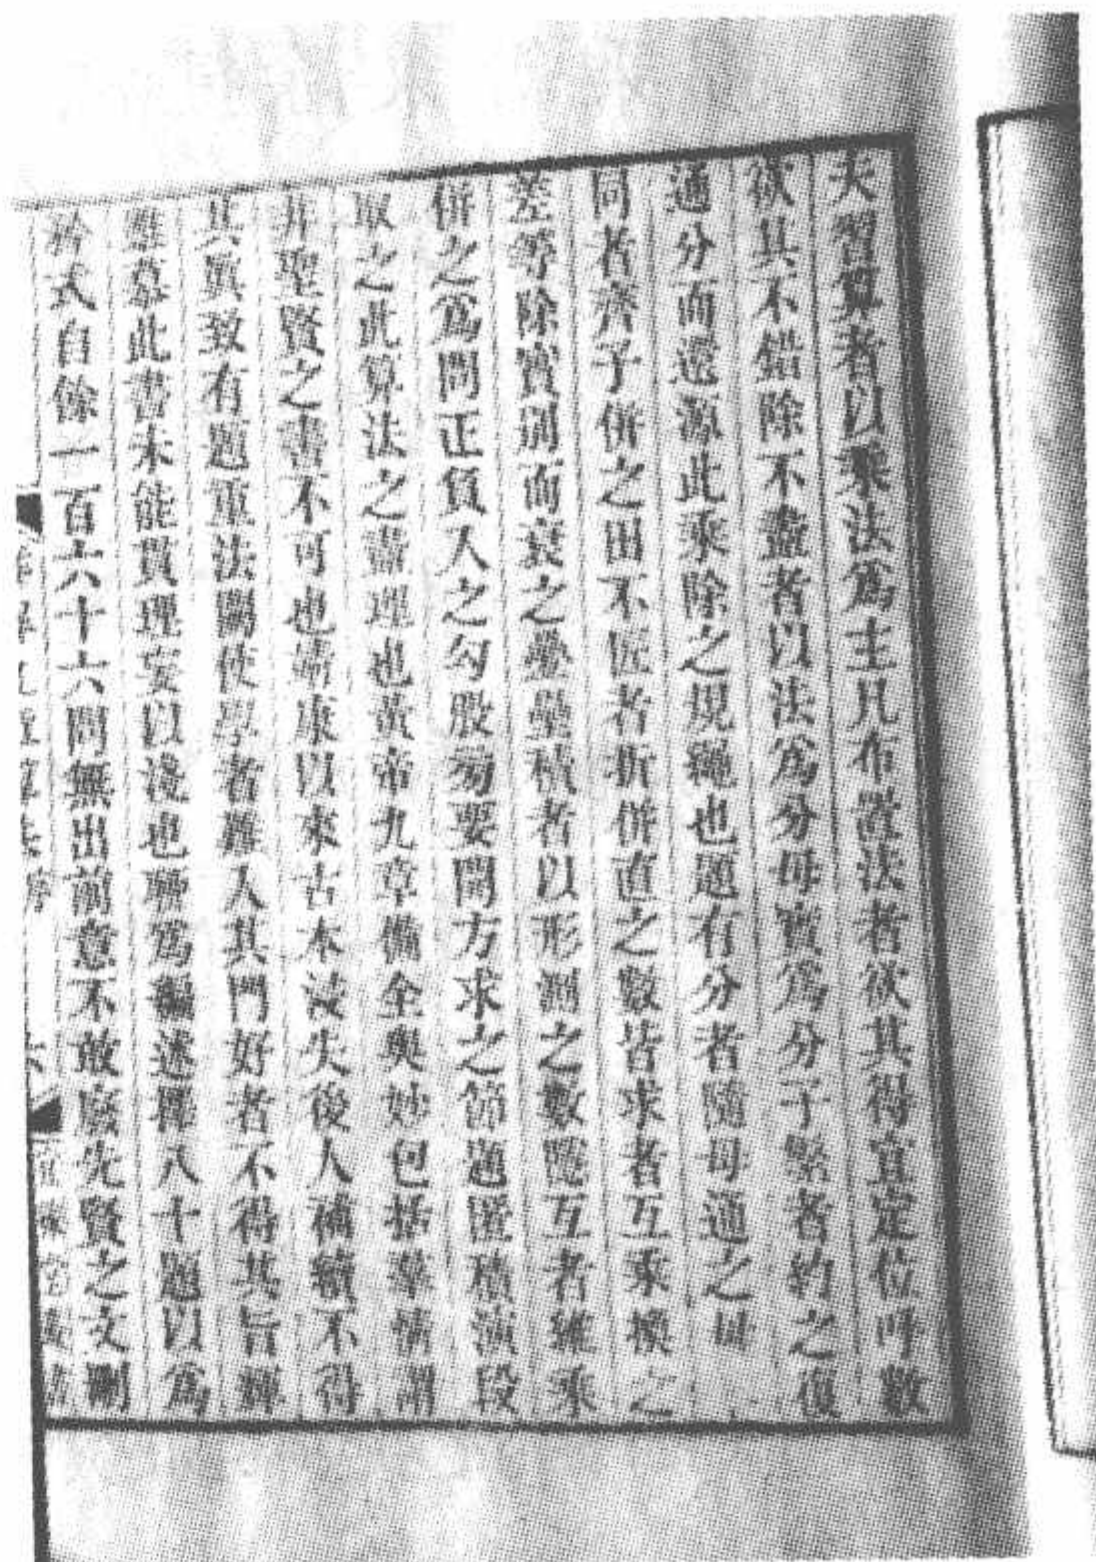 夫習算者以乘法爲主凡布置法者欲其得宜定位呼數
欲其不錯除不盡者以法爲分母實爲分子繁者約之復
通分而還源此乘除之規繩也題有分者隨母通之母
同者齊子併之田不匠者折併直之數皆求者互乘換之
差等除實別而衰之壘積者以形測之數隱互者維乘
併之爲問正負入之勾股旁要開方求之節題匿積演段
取之此算法之盡理也黃帝九章備全奧妙包括羣情謂
非聖賢之書不可也靖康以來古本浸失後人補續不得
其眞致有題重法闕使學者難入其門好者不得其旨輝
雖慕此書未能貫理妄以淺也聊爲編述擇八十題以爲
矜式自餘一百六十六問無出前意不敢廢先賢之文刪
詳解九章算法序 六 宜稼堂叢書